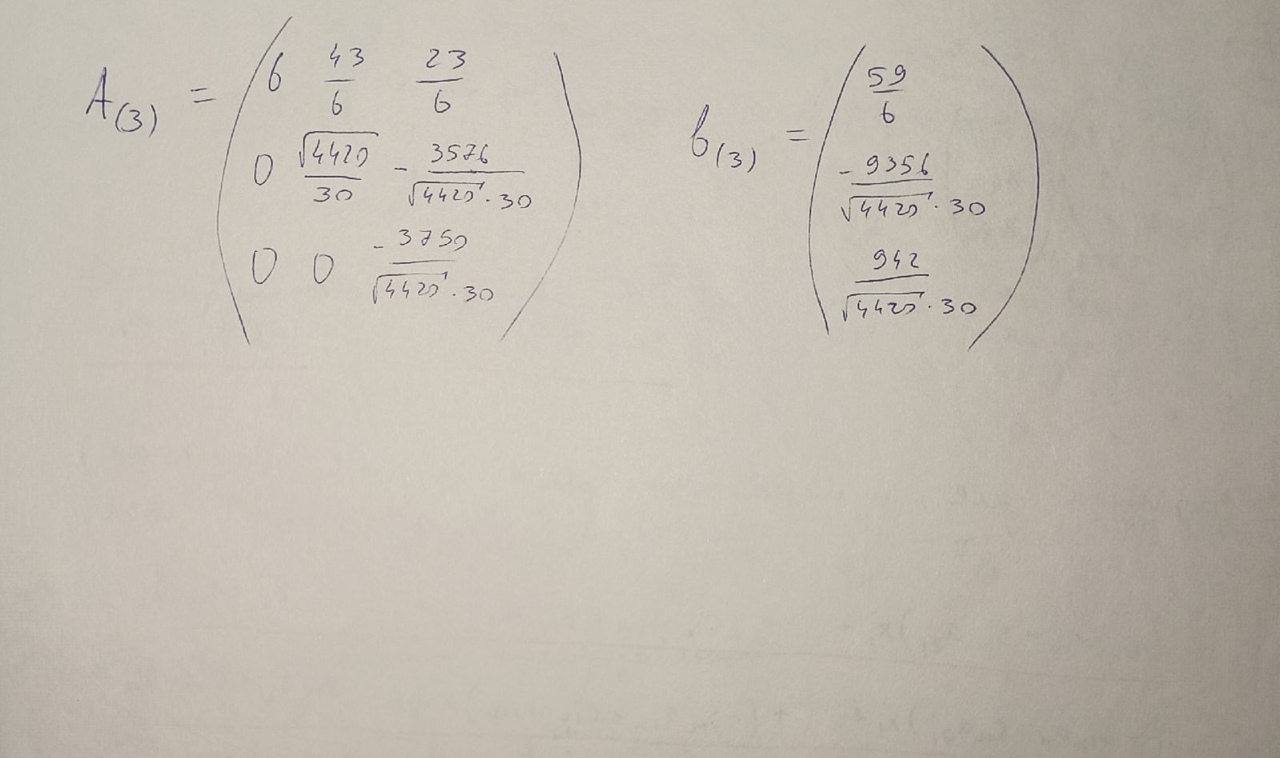 A₍₃₎ = ( 6 43/6 23/6
0 √4420/30 - 3576/(√4420 · 30)
0 0 - 3750/(√4420 · 30) )
b₍₃₎ = ( 59/6
- 9356/(√4420 · 30)
942/(√4420 · 30) )